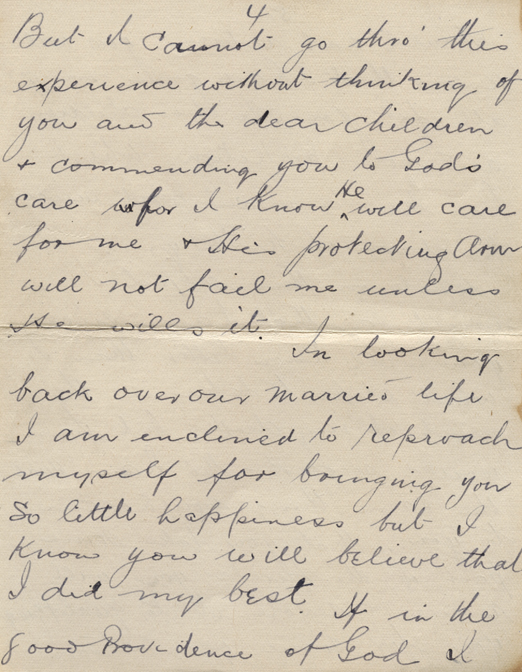 4
But I cannot go thro' this
experience without thinking of
you and the dear children
+ commending you to God's
care for I know He will care
for me + His protecting Arm
will not fail me unless
He wills it. In looking
back over our married life
I am inclined to reproach
myself for bringing you
so little happiness but I
know you will believe that
I did my best. If in the
good Providence of God I